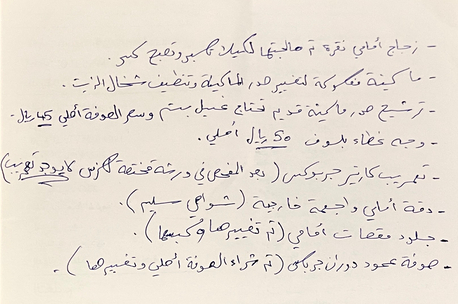 - زجاج أمامي نقرة تم معالجتها لكيلا تكسر وتصبح كبيرة.
- ماكينة مفكوكة لتغيير صدر الماكينة وتنظيف منخال الزيت.
- ترشيح صدر ماكينة قديم تحتاج غسيل بستم وسعر الصوفة أصلي 45 ريال.
- وجه غطاء بلوف 50 ريال أصلي.
- تهريب كارتير جيربوكس (بعد الفحص في ورشة مختصة للجيربوكس لا يوجد تهريب)
- دقة أمامي واجهة خارجية (شواصي سليم).
- جلود مقصات أمامي (تم تغييرها وكبسها).
- صوفة عمود دوران جربكس (تم شراء الصوفة أصلي وتغييرها).